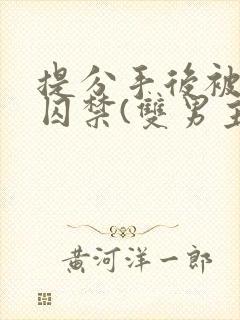 提分手後被
囚禁(雙男主
黃河洋一郎